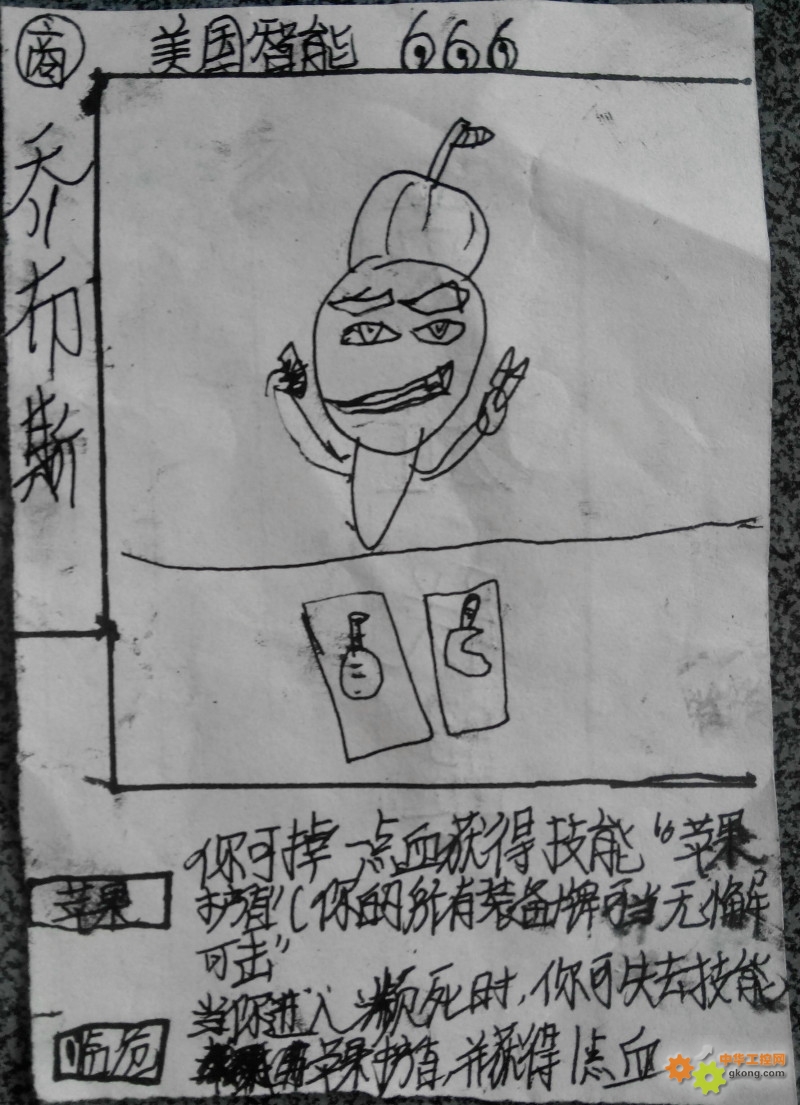 商
美国智能 666
乔布斯
苹果
你可掉一点血获得技能“苹果
护盾”（你的所有装备牌可当无懈
可击”
临危
当你进入濒死时，你可失去技能
苹果护盾，并获得1点血
中华工控网
gkong.com